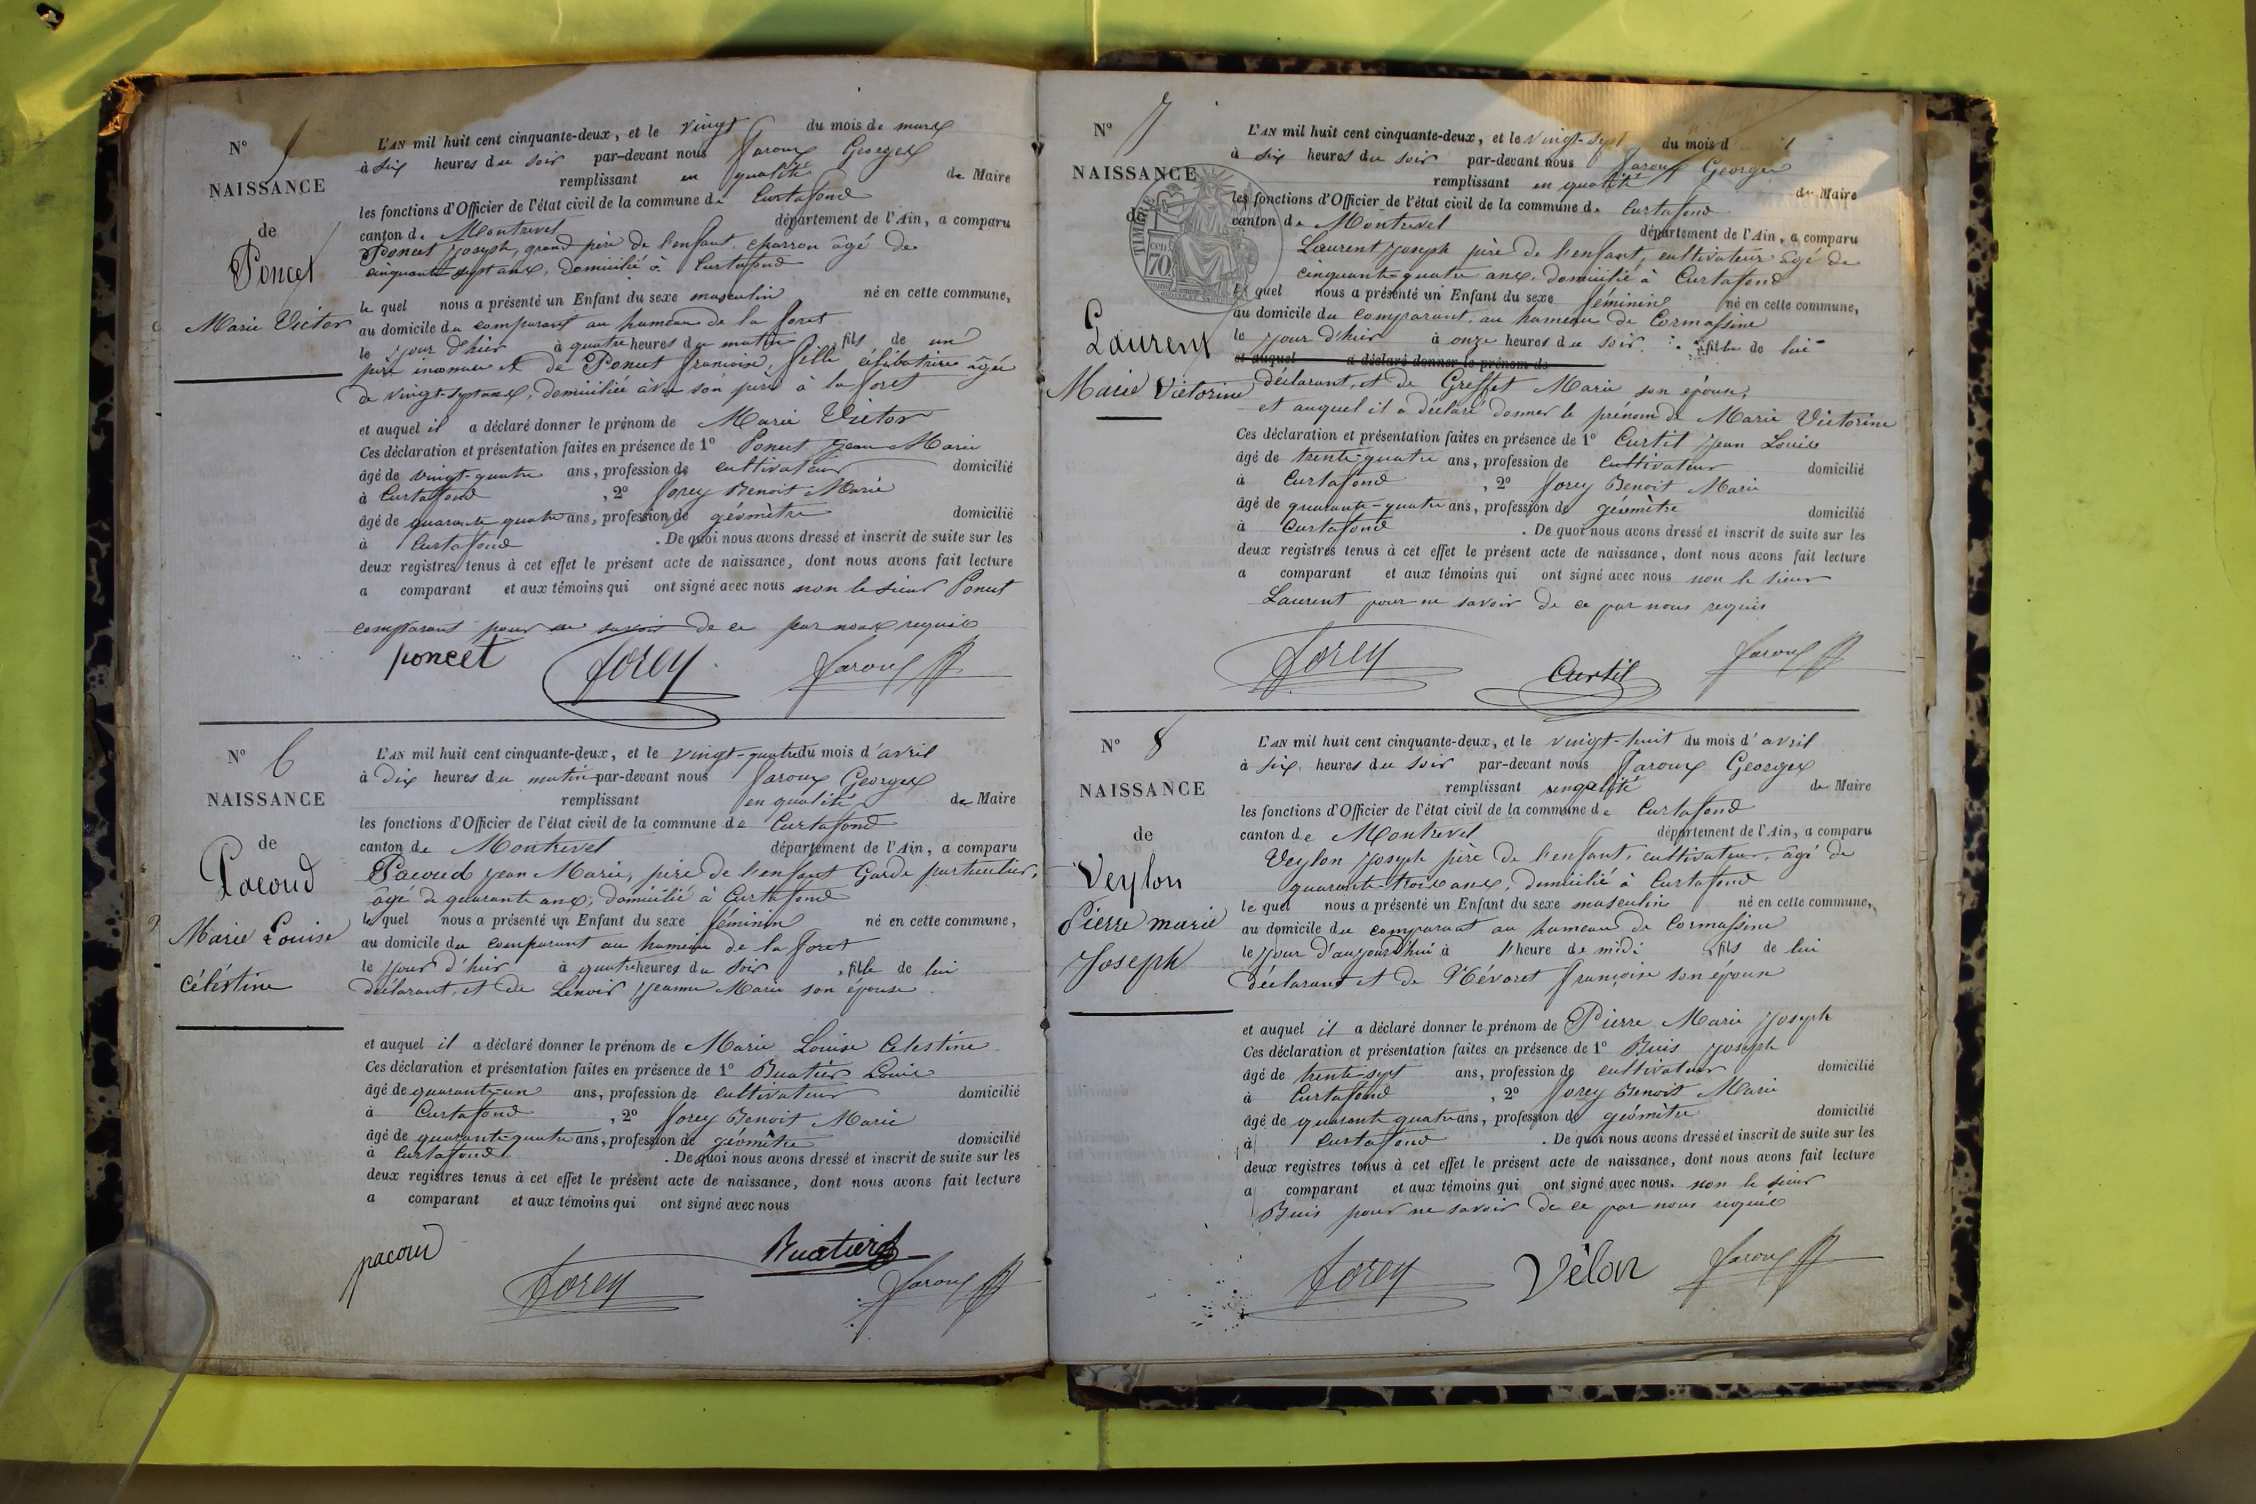 N° 5
NAISSANCE
de
Poncet
Marie Victor
L'AN mil huit cent cinquante-deux, et le vingt du mois de mars
à six heures du soir par-devant nous Faroux Georges
remplissant en qualité de Maire
les fonctions d'Officier de l'état civil de la commune de Curtafond
canton de Montrevel département de l'Ain, a comparu
Poncet Joseph, grand père de l'enfant, charron âgé de
cinquante sept ans, domicilié à Curtafond
le quel nous a présenté un Enfant du sexe masculin né en cette commune,
au domicile du comparant au hameau de la foret
le jour d'hier à quatre heures du matin, fils de un
père inconnu et de Poncet françoise, fille célibataire âgée
de vingt-sept ans, domiciliée avec son père à la foret
et auquel il a déclaré donner le prénom de Marie Victor
Ces déclaration et présentation faites en présence de 1° Poncet Jean Marie
âgé de vingt-quatre ans, profession de cultivateur domicilié
à Curtafond, 2° forey Benoit Marie
âgé de quarante quatre ans, profession de géomètre domicilié
à Curtafond. De quoi nous avons dressé et inscrit de suite sur les
deux registres tenus à cet effet le présent acte de naissance, dont nous avons fait lecture
a comparant et aux témoins qui ont signé avec nous non le sieur Poncet
comparant pour ne savoir de ce par nous requis
poncet forey faroux
N° 6
NAISSANCE
de
Pacoud
Marie Louise
Céléstine
L'AN mil huit cent cinquante-deux, et le vingt-quatre du mois d'avril
à dix heures du matin par-devant nous Faroux Georges
remplissant en qualité de Maire
les fonctions d'Officier de l'état civil de la commune de Curtafond
canton de Montrevel département de l'Ain, a comparu
Pacoud Jean Marie, père de l'enfant Garde particulier,
âgé de quarante ans, domicilié à Curtafond
le quel nous a présenté un Enfant du sexe féminin né en cette commune,
au domicile du comparant au hameau de la foret
le jour d'hier à quatre heures du soir, fille de lui
déclarant, et de Lenoir Jeanne Marie son épouse.
et auquel il a déclaré donner le prénom de Marie Louise Célestine
Ces déclaration et présentation faites en présence de 1° Buatier Louis
âgé de quarante-un ans, profession de cultivateur domicilié
à Curtafond, 2° forey Benoit Marie
âgé de quarante quatre ans, profession de géomètre domicilié
à Curtafond. De quoi nous avons dressé et inscrit de suite sur les
deux registres tenus à cet effet le présent acte de naissance, dont nous avons fait lecture
a comparant et aux témoins qui ont signé avec nous
pacoud forey Buatier faroux
N° 7
NAISSANCE
de
TIMBRE
70
Laurent
Marie Victorine
L'AN mil huit cent cinquante-deux, et le vingt-sept du mois d
à six heures du soir par-devant nous Faroux Georges
remplissant en qualité de Maire
les fonctions d'Officier de l'état civil de la commune de Curtafond
canton de Montrevel département de l'Ain, a comparu
Laurent Joseph père de l'enfant, cultivateur âgé de
cinquante-quatre ans, domicilié à Curtafond
le quel nous a présenté un Enfant du sexe féminin né en cette commune,
au domicile du comparant, au hameau de Cormassine
le jour d'hier à onze heures du soir, fille de lui
et auquel a déclaré donner le prénom de
déclarant, et de Greffet Marie son épouse,
et auquel il a déclaré donner le prénom de Marie Victorine
Ces déclaration et présentation faites en présence de 1° Curtil Jean Louis
âgé de trente-quatre ans, profession de cultivateur domicilié
à Curtafond, 2° forey Benoit Marie
âgé de quarante-quatre ans, profession de géomètre domicilié
à Curtafond. De quoi nous avons dressé et inscrit de suite sur les
deux registres tenus à cet effet le présent acte de naissance, dont nous avons fait lecture
a comparant et aux témoins qui ont signé avec nous non le sieur
Laurent pour ne savoir de ce par nous requis
forey Curtil faroux
N° 8
NAISSANCE
de
Veylon
Pierre marie
Joseph
L'AN mil huit cent cinquante-deux, et le vingt-huit du mois d'avril
à six heures du soir par-devant nous Faroux Georges
remplissant en qualité de Maire
les fonctions d'Officier de l'état civil de la commune de Curtafond
canton de Montrevel département de l'Ain, a comparu
Veylon Joseph père de l'enfant, cultivateur, âgé de
quarante-trois ans, domicilié à Curtafond
le quel nous a présenté un Enfant du sexe masculin né en cette commune,
au domicile du comparant au hameau de Cormassine
le jour d'aujourd'hui à l'heure de midi fils de lui
déclarant et de Névoret françoise son épouse
et auquel il a déclaré donner le prénom de Pierre Marie Joseph
Ces déclaration et présentation faites en présence de 1° Buis Joseph
âgé de trente-sept ans, profession de cultivateur domicilié
à Curtafond, 2° forey Benoit Marie
âgé de quarante quatre ans, profession de géomètre domicilié
à Curtafond. De quoi nous avons dressé et inscrit de suite sur les
deux registres tenus à cet effet le présent acte de naissance, dont nous avons fait lecture
a comparant et aux témoins qui ont signé avec nous. non le sieur
Buis pour ne savoir de ce par nous requis
forey Vélon faroux